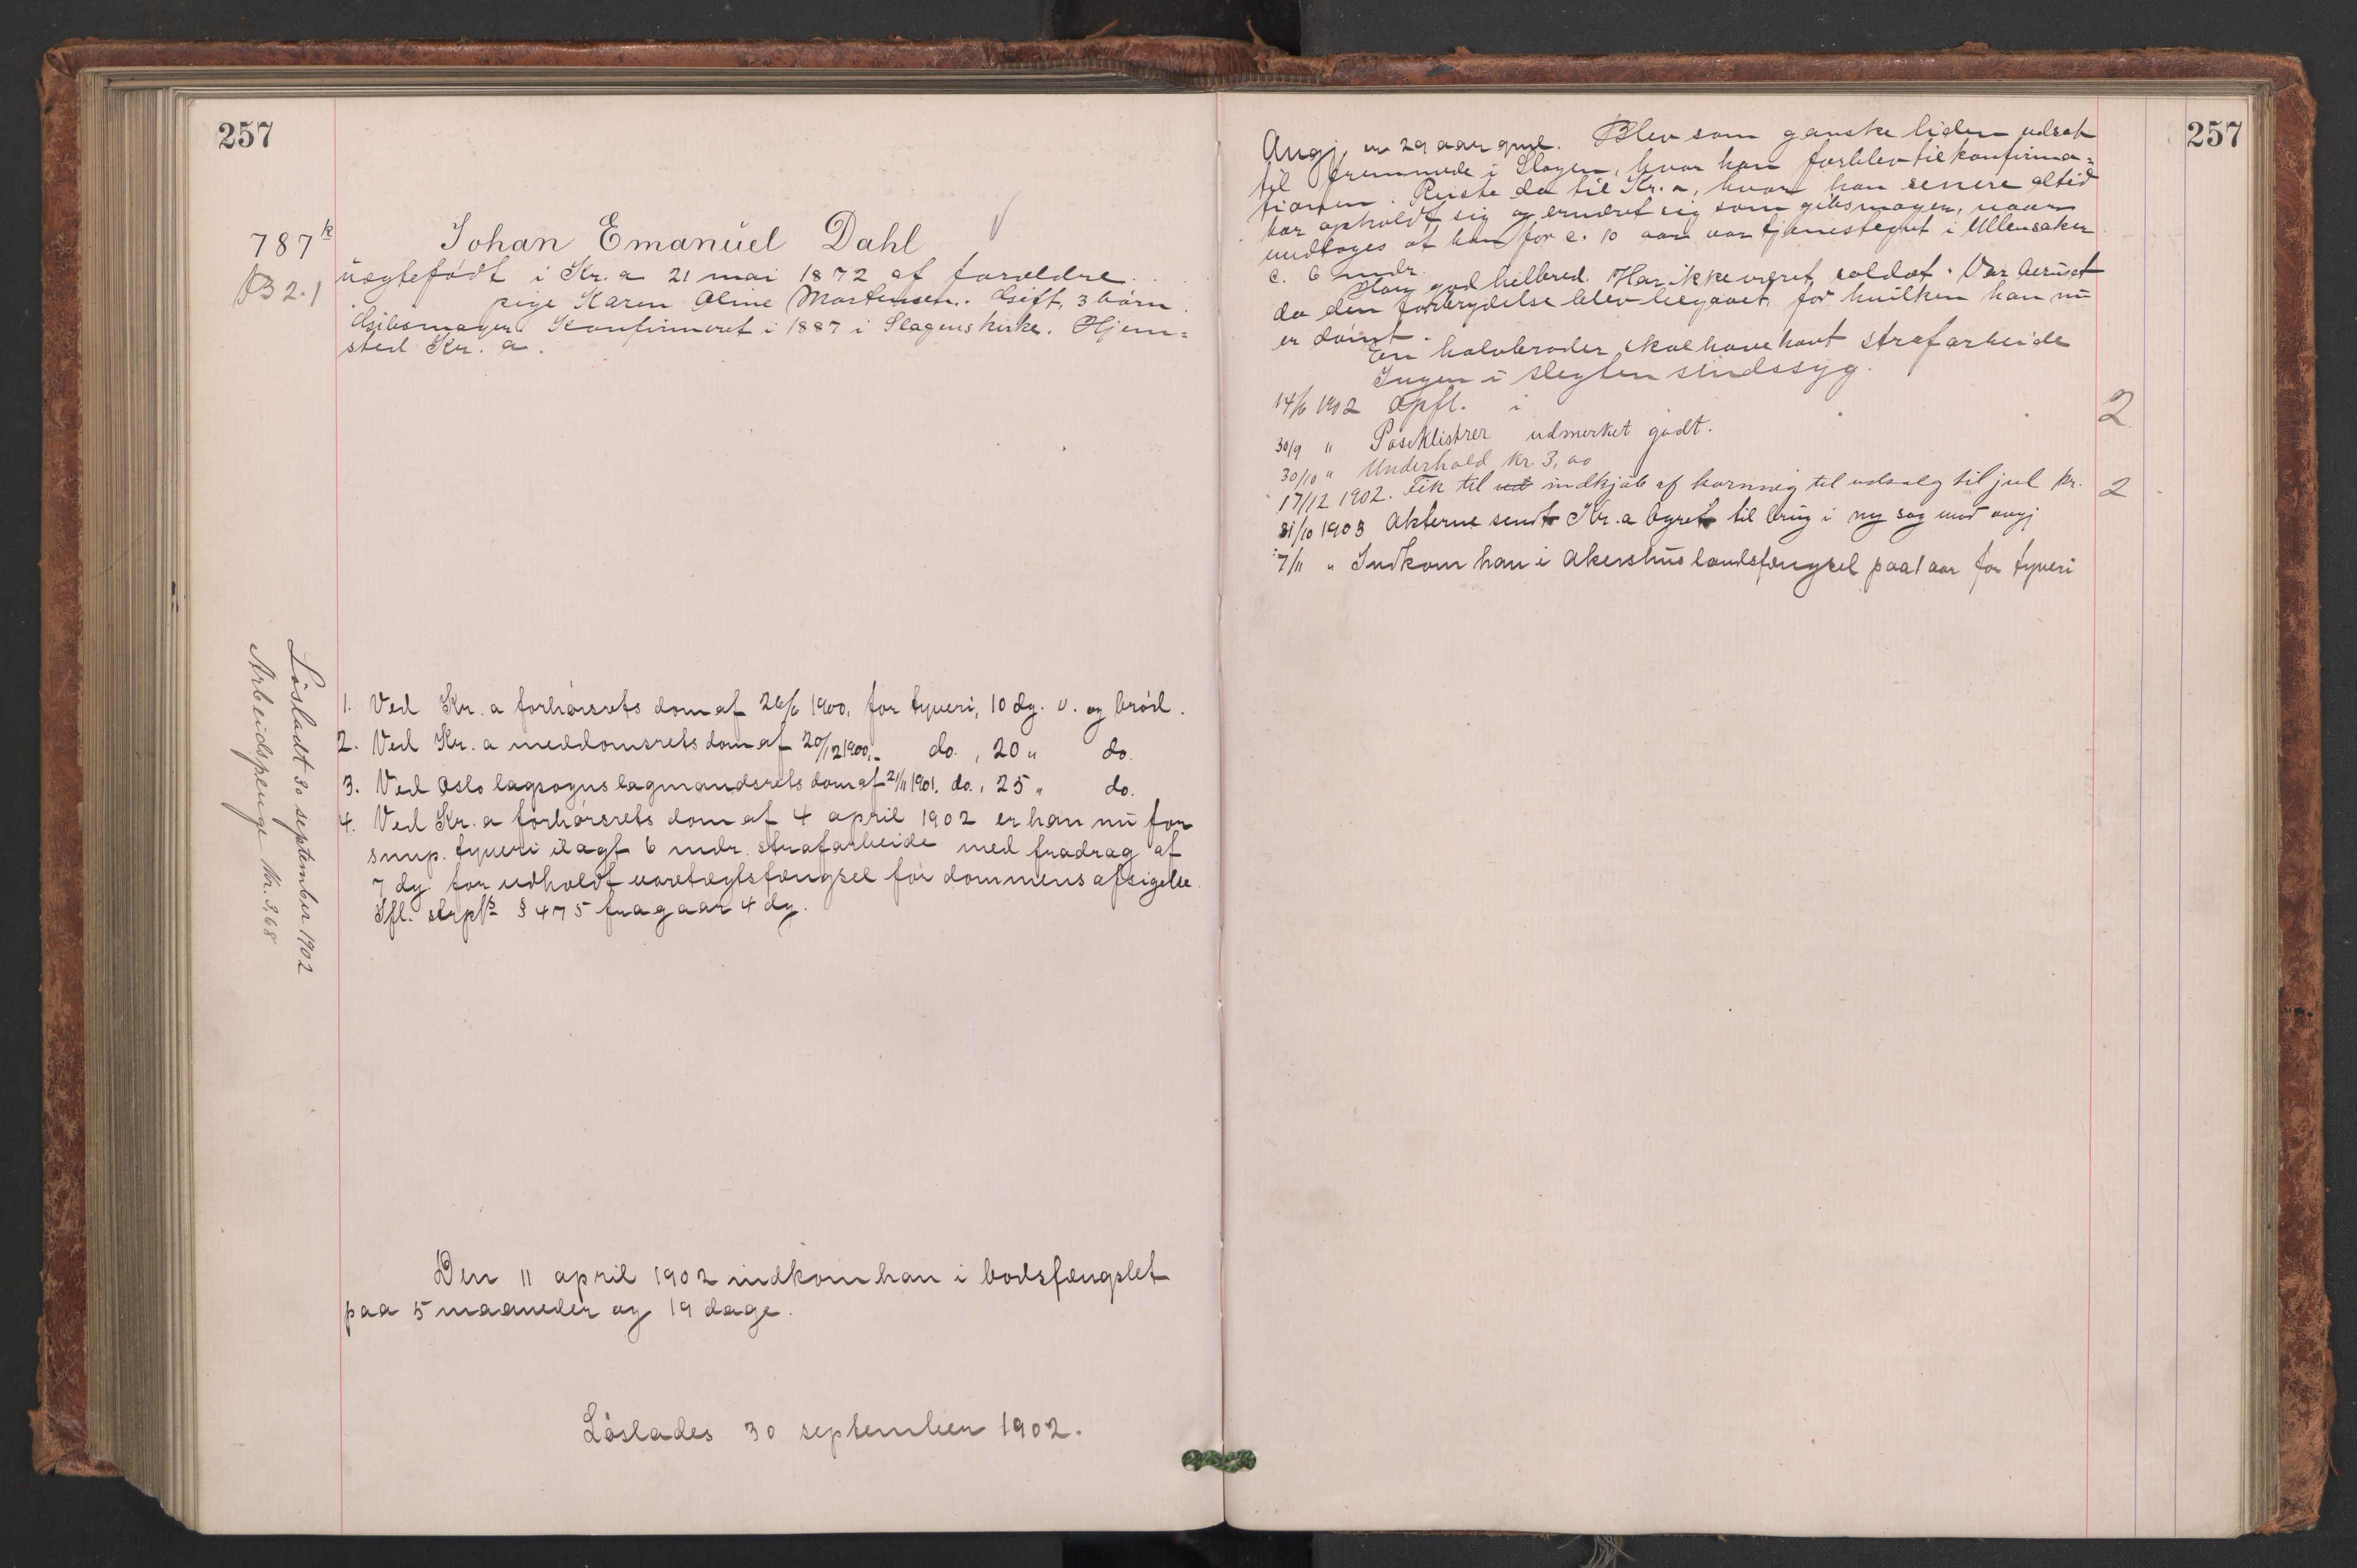 257
787 k
B 2.1
Johan Emanuel Dahl
uægtefødt i Kr.a 21 mai 1872 af forældre
pige Karen Oline Mortensen. Gift, 3 børn.
Gibsmager. Konfirmeret i 1887 i Slagens kirke. Hjem-
sted Kr.a.
Løsladt 30 september 1902
Arbeidspenge Kr. 3,68
1. Ved Kr.a forhørsrets dom af 26/6 1900, for tyveri, 10 dg. v. og brød.
2. Ved Kr.a meddomsrets dom af 20/12 1900, do., 20 " do.
3. Ved Oslo lagsogns lagmandsrets dom af 21/11 1901. do., 25 " do.
4. Ved Kr.a forhørsrets dom af 4 april 1902 er han nu for
simp. tyveri ilagt 6 mdr. strafarbeide med fradrag af
7 dg. for udholdt varetægtsfængsel før dommens afsigelse.
Ifl. strpl. § 475 fragaar 4 dg.
Den 11 april 1902 indkom han i bodsfængslet
paa 5 maaneder og 19 dage.
Løslades 30 september 1902.
257
Angj. er 29 aar gml. Blev som ganske liden udsat
til fremmede i Slagen, hvor han forblev til konfirma-
tionen. Reiste da til Kr.a, hvor han senere altid
har opholdt sig og ernæret sig som gibsmager, naar
undtages at han for c. 10 aar var tjenestegut i Ullensaker
c. 6 mdr.
Har god helbred. Har ikke været soldat. Var beruset
da den forbrydelse blev begaaet for hvilken han nu
er dømt.
En halvbroder skal have havt strafarbeide
Ingen i slegten sindssyg.
14/6 1902 Opfl. i 2
30/9 " Poseklistrer udmerket godt.
30/10 " Underhold kr 3,00
17/12 1902. Fik til ud indkjøb af til udsalg til jul kr. 2
31/10 1903 Akterne sendt Kr.a byret til brug i ny sag mod angj
7/11 " Indkom han i Akershus landsfængsel paa 1 aar for tyveri